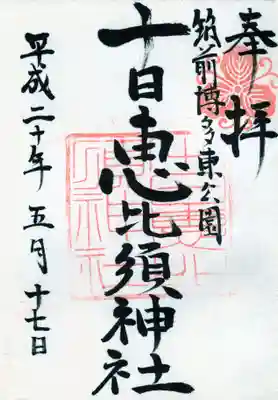 奉拝
筑前博多東公園
十日恵比須神社
平成二十年 五月 十七日